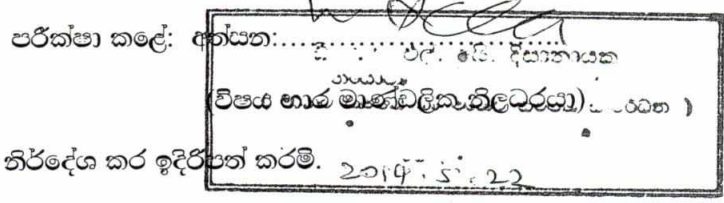 පරීක්ෂා කළේ: අත්සන:..............................
එල්. දිසානායක
(විෂය භාර මාණ්ඩලික නිලධරයා)
නිර්දේශ කර ඉදිරිපත් කරමි. 2014. 5. 22